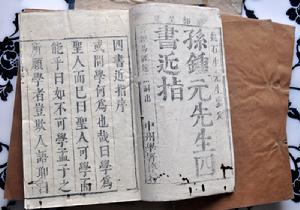 孫鍾元先生四
書近指
中州學
四書近指序
或問學何為也哉曰學為
聖人而已曰聖人可學而
能乎曰如不可學孟子之
所願學者豈欺人語聊曰